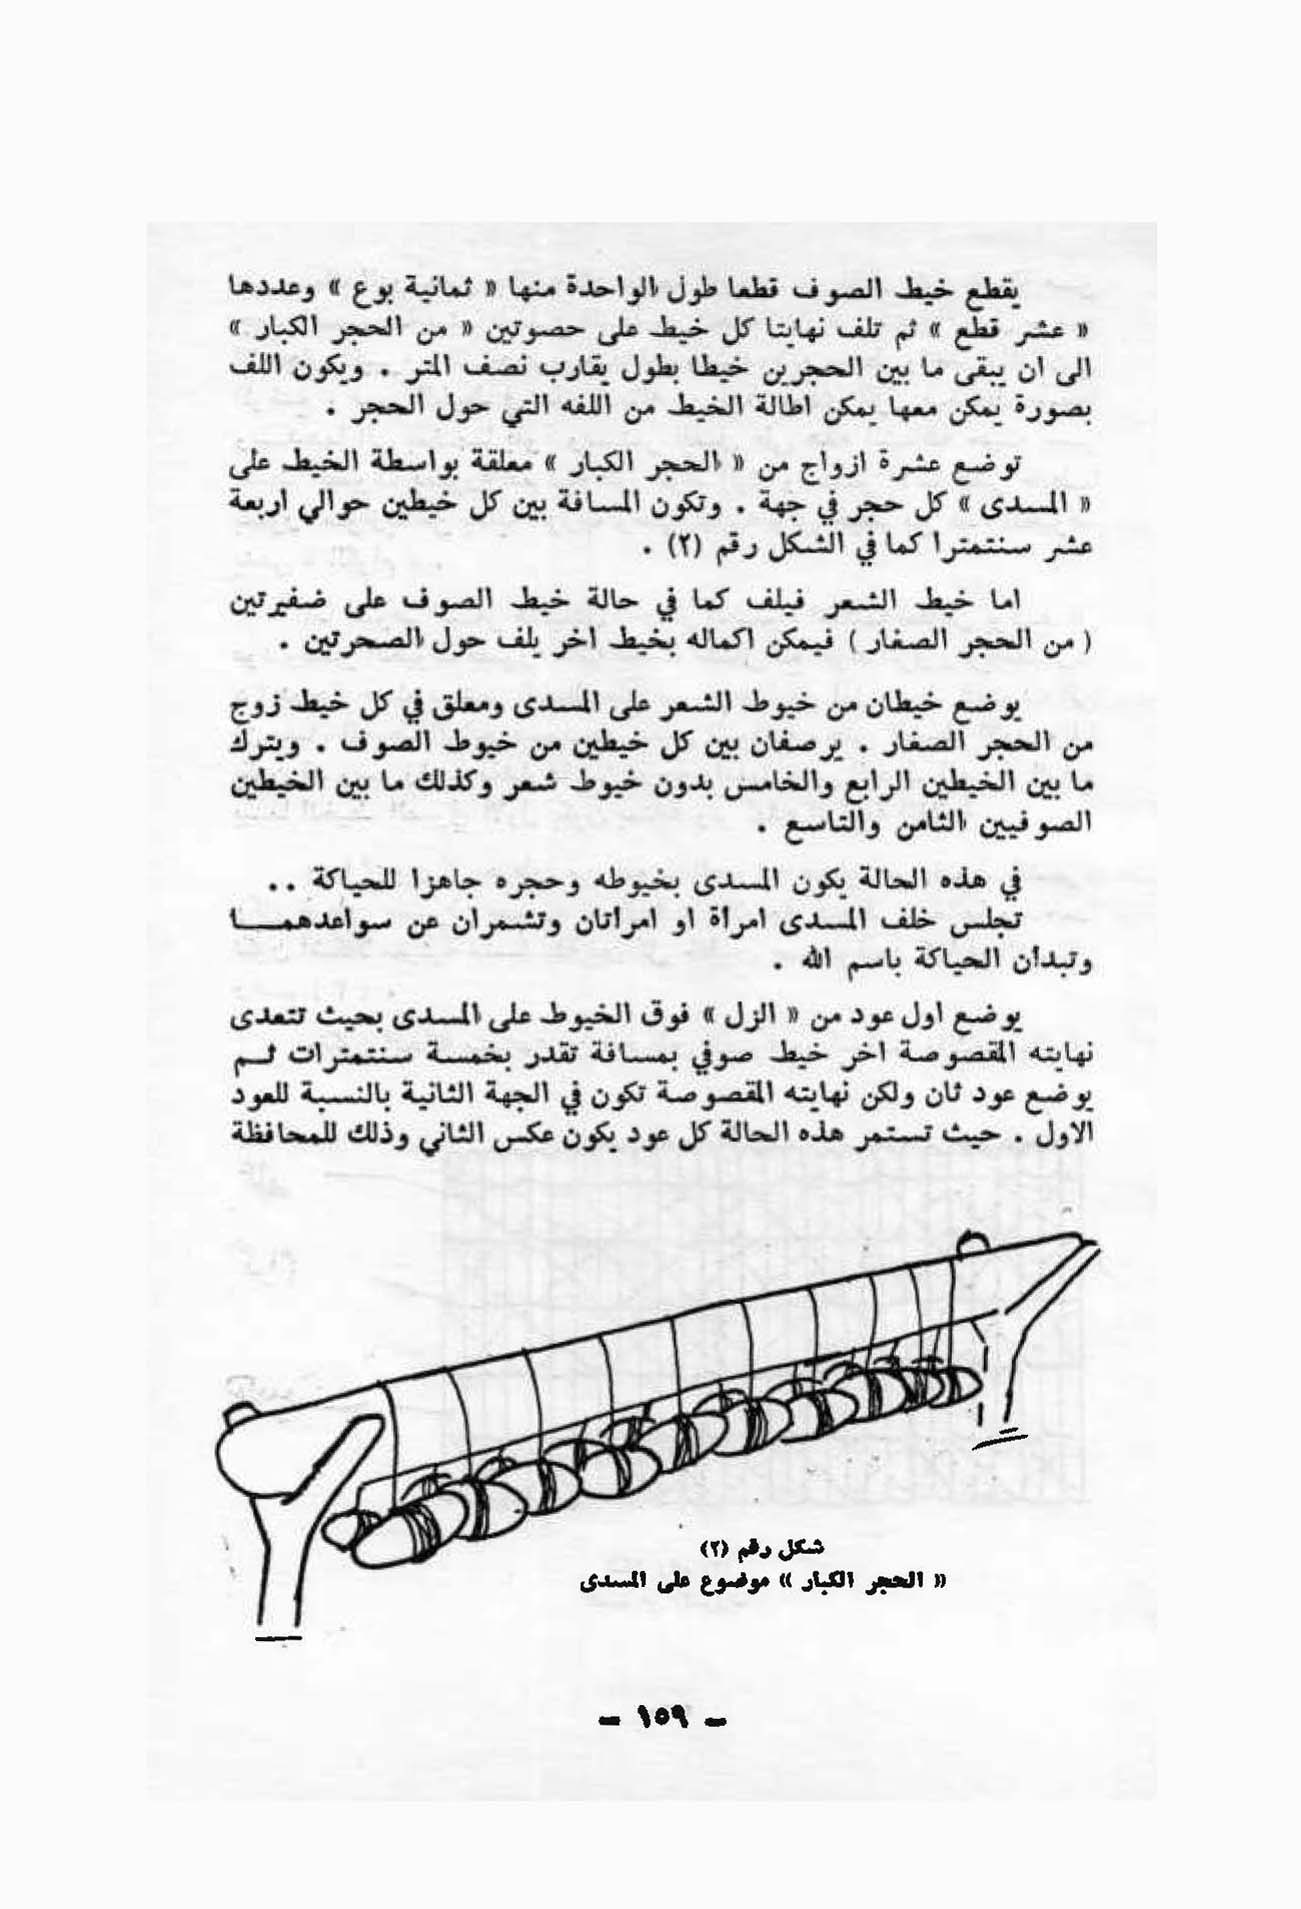 يقطع خيط الصوف قطعا طول الواحدة منها « ثمانية بوع » وعددها
« عشر قطع » ثم تلف نهايتا كل خيط على حصوتين « من الحجر الكبار »
الى ان يبقى ما بين الحجرين خيطا بطول يقارب نصف المتر . ويكون اللف
بصورة يمكن معها يمكن اطالة الخيط من اللفه التي حول الحجر .
توضع عشرة ازواج من « الحجر الكبار » معلقة بواسطة الخيط على
« المسدى » كل حجر في جهة . وتكون المسافة بين كل خيطين حوالي اربعة
عشر سنتمترا كما في الشكل رقم (٢) .
اما خيط الشعر فيلف كما في حالة خيط الصوف على ضفيرتين
( من الحجر الصغار ) فيمكن اكماله بخيط اخر يلف حول الصحرتين .
يوضع خيطان من خيوط الشعر على المسدى ومعلق في كل خيط زوج
من الحجر الصغار . يرصفان بين كل خيطين من خيوط الصوف . ويترك
ما بين الخيطين الرابع والخامس بدون خيوط شعر وكذلك ما بين الخيطين
الصوفيين الثامن والتاسع .
في هذه الحالة يكون المسدى بخيوطه وحجره جاهزا للحياكة . .
تجلس خلف المسدى امرأة او امرأتان وتشمران عن سواعدهمـــا
وتبدأن الحياكة باسم الله .
يوضع اول عود من « الزل » فوق الخيوط على المسدى بحيث تتعدى
نهايته المقصوصة اخر خيط صوفي بمسافة تقدر بخمسة سنتمترات ثـم
يوضع عود ثان ولكن نهايته المقصوصة تكون في الجهة الثانية بالنسبة للعود
الاول . حيث تستمر هذه الحالة كل عود يكون عكس الثاني وذلك للمحافظة
شكل رقم (٢)
« الحجر الكبار » موضوع على المسدى
- ١٥٩ -